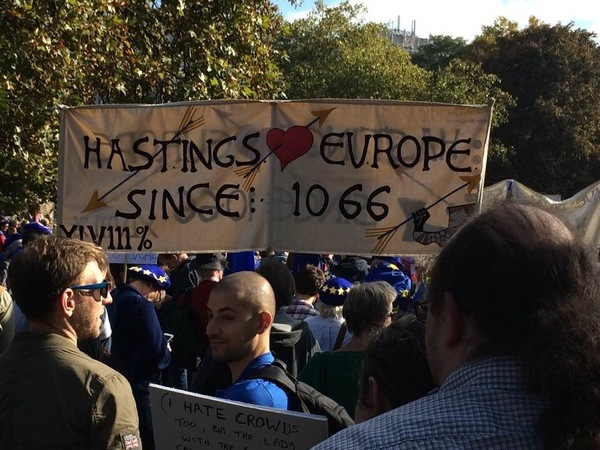 HASTINGS ❤ EUROPE
SINCE: 1066
XLV111%
(I HATE CROWDS
TOO, BUT THE LADY
WITH THE